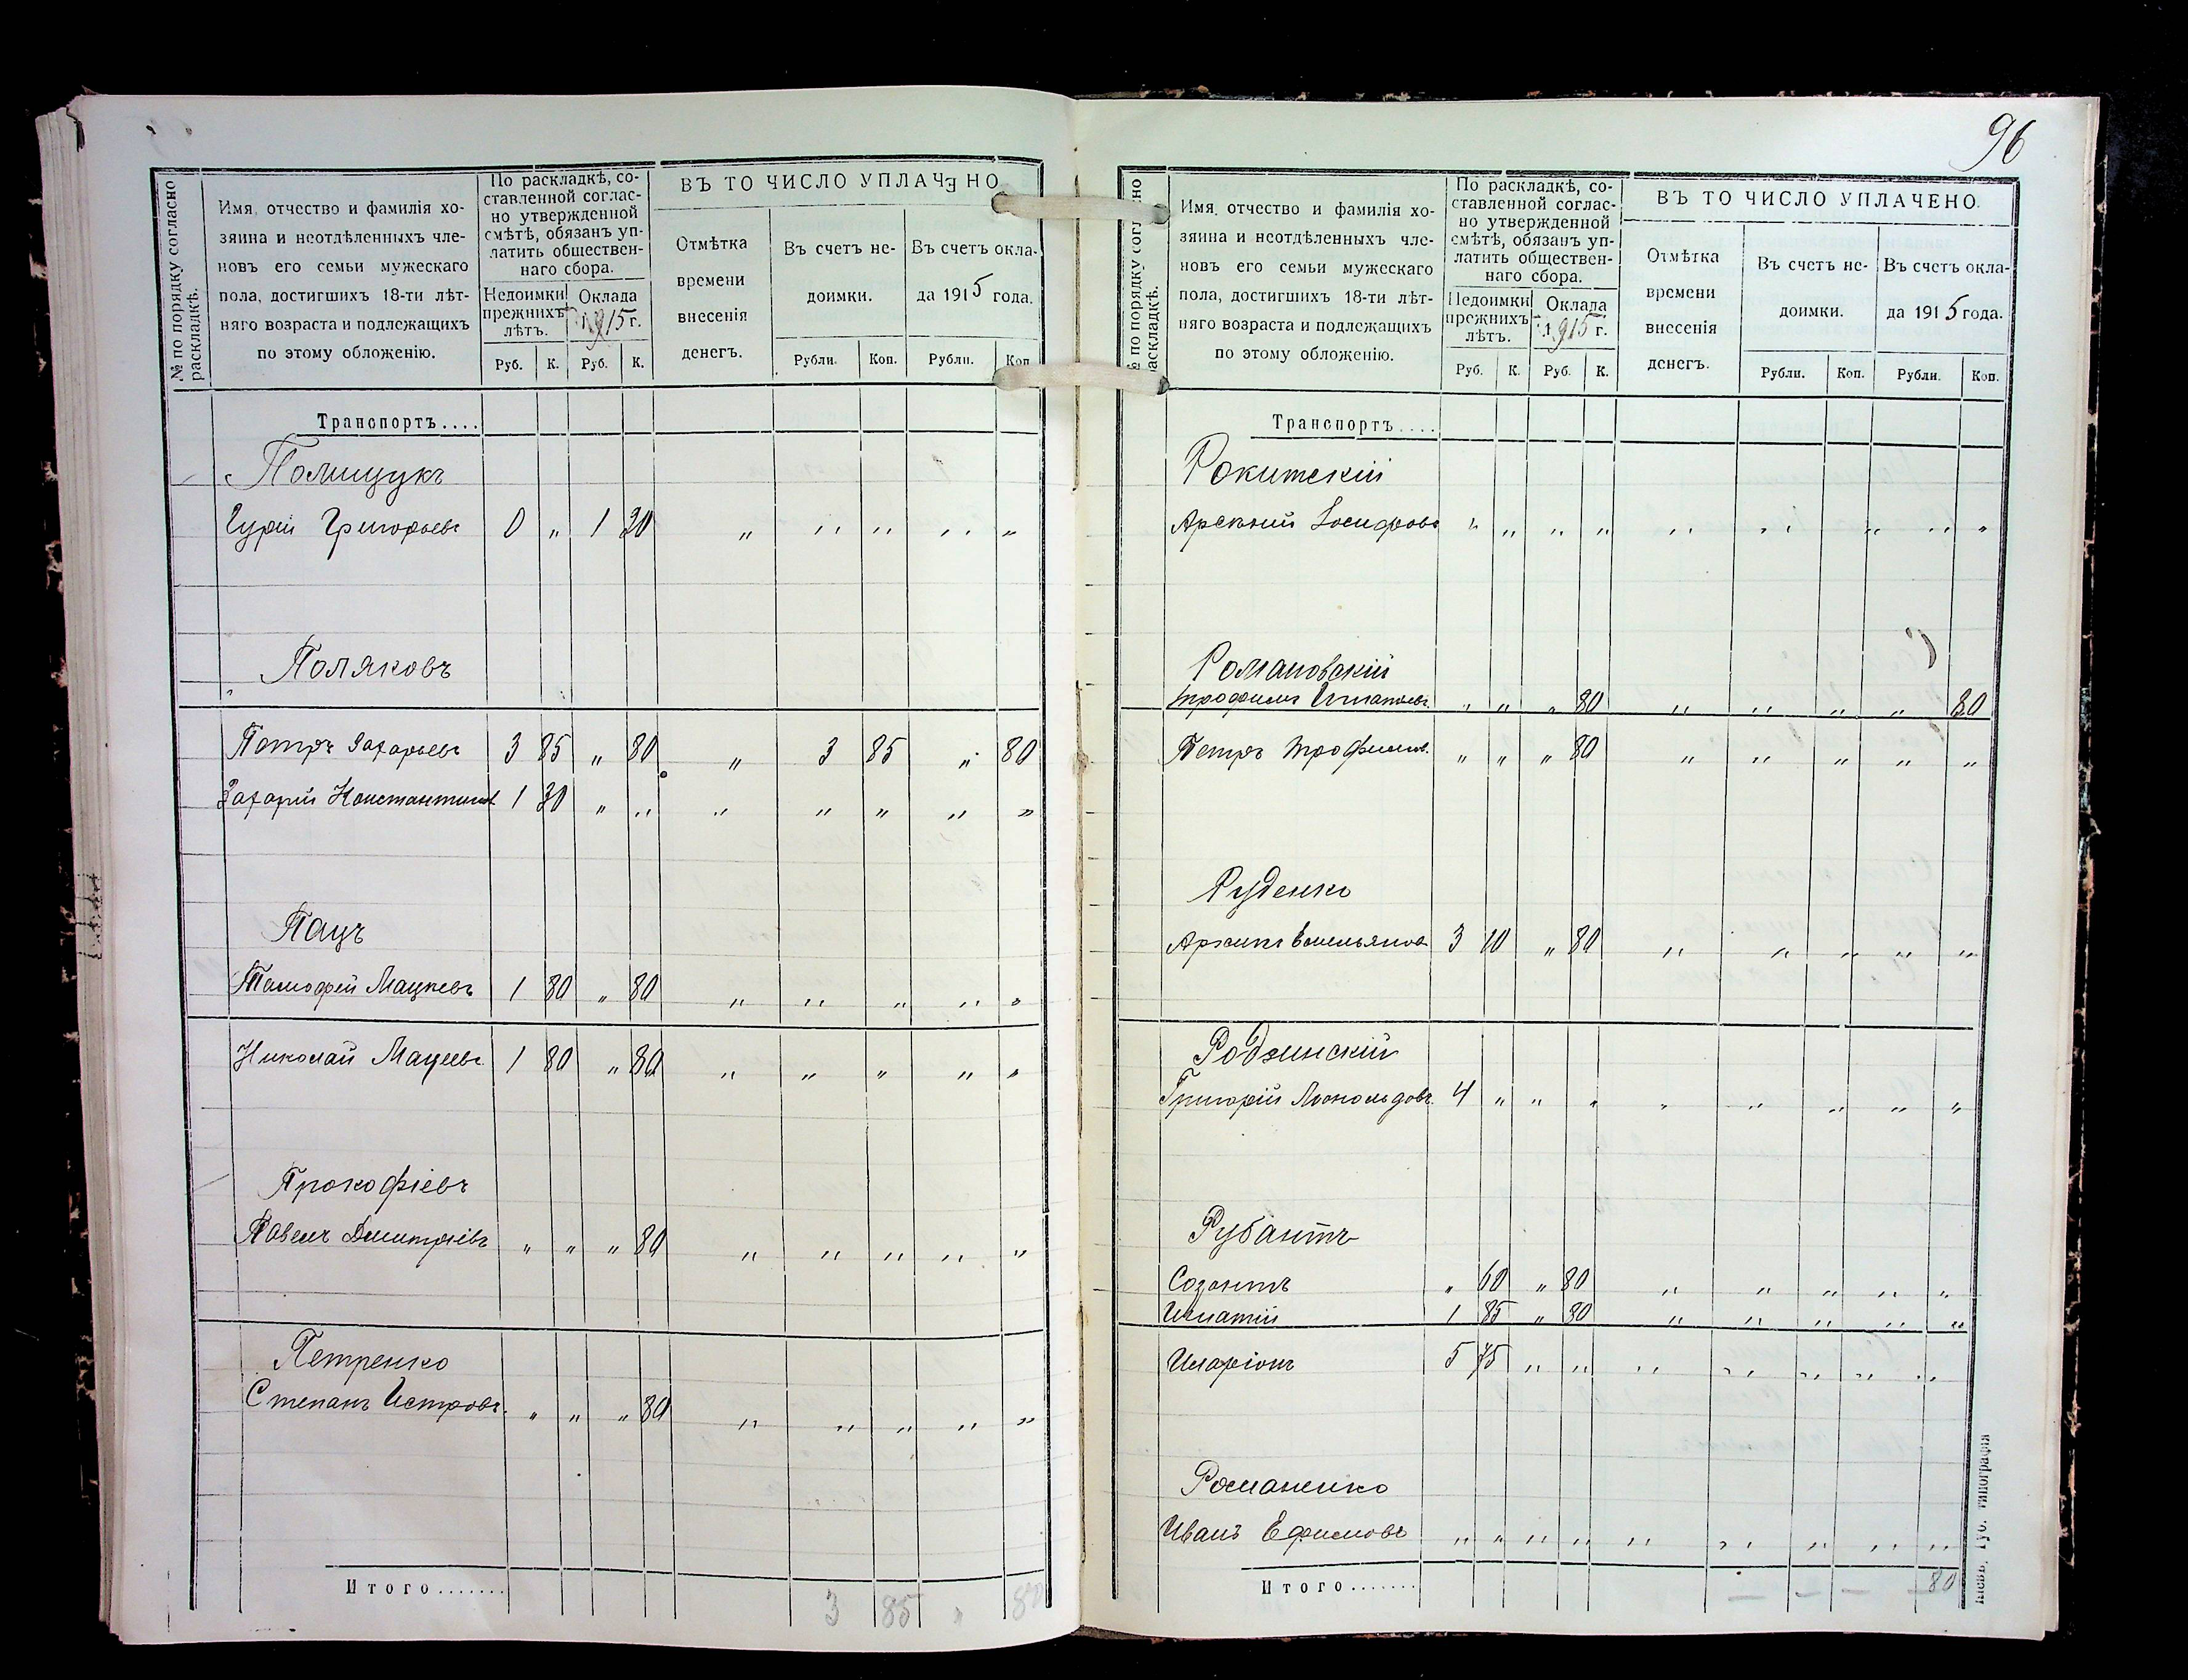 № по порядку согласно раскладкѣ.
Имя, отчество и фамилія хозяина и неотдѣленныхъ членовъ его семьи мужескаго пола, достигшихъ 18-ти лѣтняго возраста и подлежащихъ по этому обложенію.
По раскладкѣ, составленной согласно утвержденной смѣтѣ, обязанъ уплатить общественнаго сбора.
Недоимки прежнихъ лѣтъ.
Оклада 1915 г.
Руб. К. Руб. К.
ВЪ ТО ЧИСЛО УПЛАЧЕНО
Отмѣтка времени внесенія денегъ.
Въ счетъ недоимки.
Въ счетъ оклада 1915 года.
Рубли. Коп. Рубли. Коп
Транспортъ....
Полищукъ
Гурій Григорьевъ 0 „ 1 20 „ „ „ „ „
Поляковъ
Петръ Захарьевъ 3 85 „ 80 „ 3 85 „ 80
Захарій Константинов. 1 30 „ „ „ „ „ „ „
Пацъ
Мацкевъ 1 80 „ 80 „ „ „ „ „
Николай Мацеевъ 1 80 „ 80 „ „ „ „ „
Прокофіевъ
Павелъ Дмитріевъ „ „ „ 80 „ „ „ „ „
Петренко
Степанъ „ „ „ 80 „ „ „ „ „
Итого....... 3 85 „ 80
96
№ по порядку согласно раскладкѣ.
Имя, отчество и фамилія хозяина и неотдѣленныхъ членовъ его семьи мужескаго пола, достигшихъ 18-ти лѣтняго возраста и подлежащихъ по этому обложенію.
По раскладкѣ, составленной согласно утвержденной смѣтѣ, обязанъ уплатить общественнаго сбора.
Недоимки прежнихъ лѣтъ.
Оклада 1915 г.
Руб. К. Руб. К.
ВЪ ТО ЧИСЛО УПЛАЧЕНО.
Отмѣтка времени внесенія денегъ.
Въ счетъ недоимки.
Въ счетъ оклада 1915 года.
Рубли. Коп. Рубли. Коп.
Транспортъ....
Рокитскій
Арсеній Іосифовъ „ „ „ „ „ „ „ „ „
Романовскій
Трофимъ Игнатьевъ „ „ „ 80 „ „ „ „ 80
Петръ Трофимов. „ „ „ 80 „ „ „ „ „
Руденко
Архипъ Емельянов 3 10 „ 80 „ „ „ „ „
Родзинскій
Григорій Леопольдовъ 4 „ „ „ „ „ „ „ „
Рубантъ
Созонтъ „ 60 „ 80 „ „ „ „ „
Игнатій 1 85 „ 80 „ „ „ „ „
Иларіонъ 5 75 „ „ „ „ „ „ „
Романенко
Иванъ Ефимовъ „ „ „ „ „ „ „ „ „
Итого....... — — — 80
Кіевъ, Губ. типографія